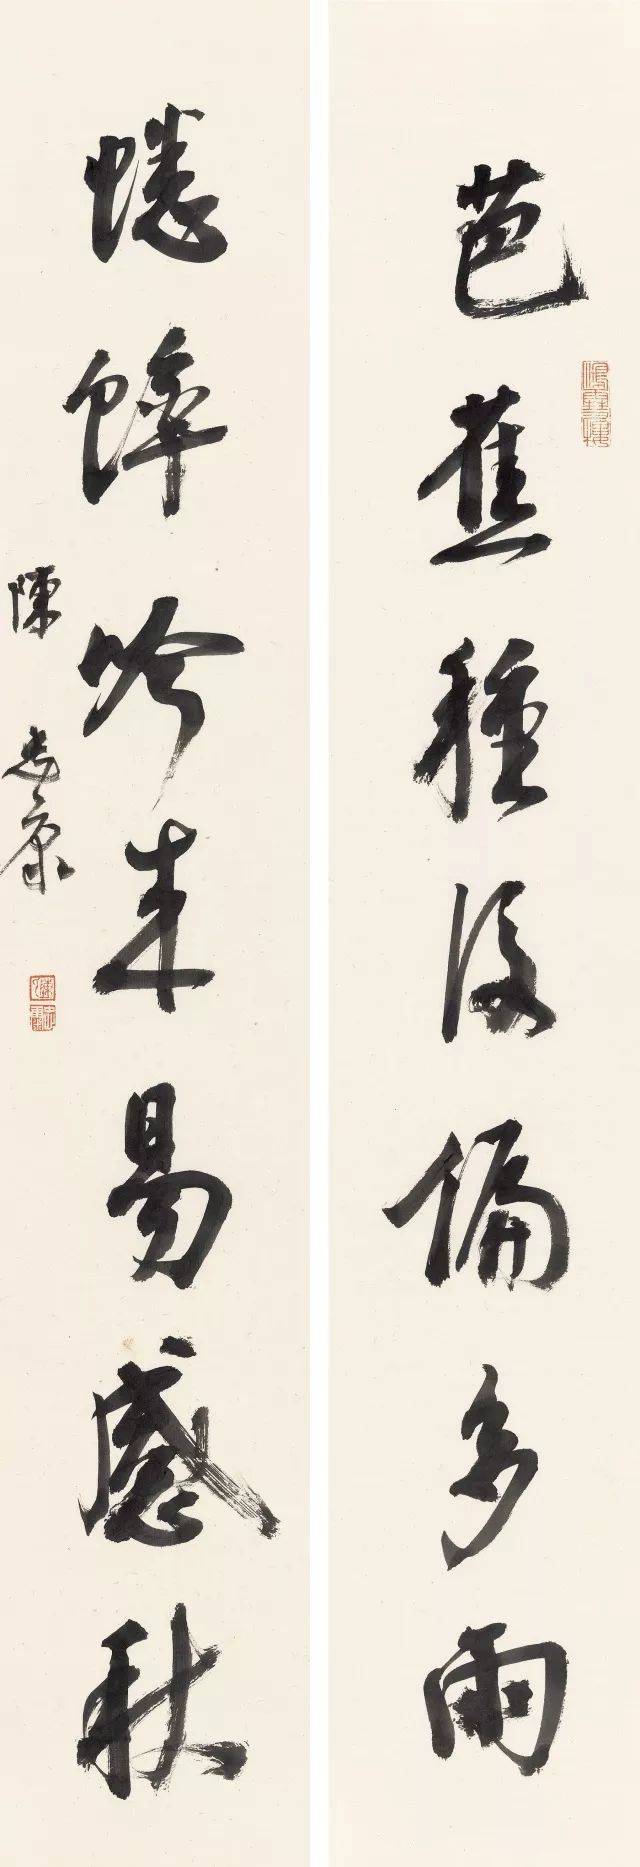 芭蕉種後偏多雨
蟋蟀吟來易感秋
陳忠康